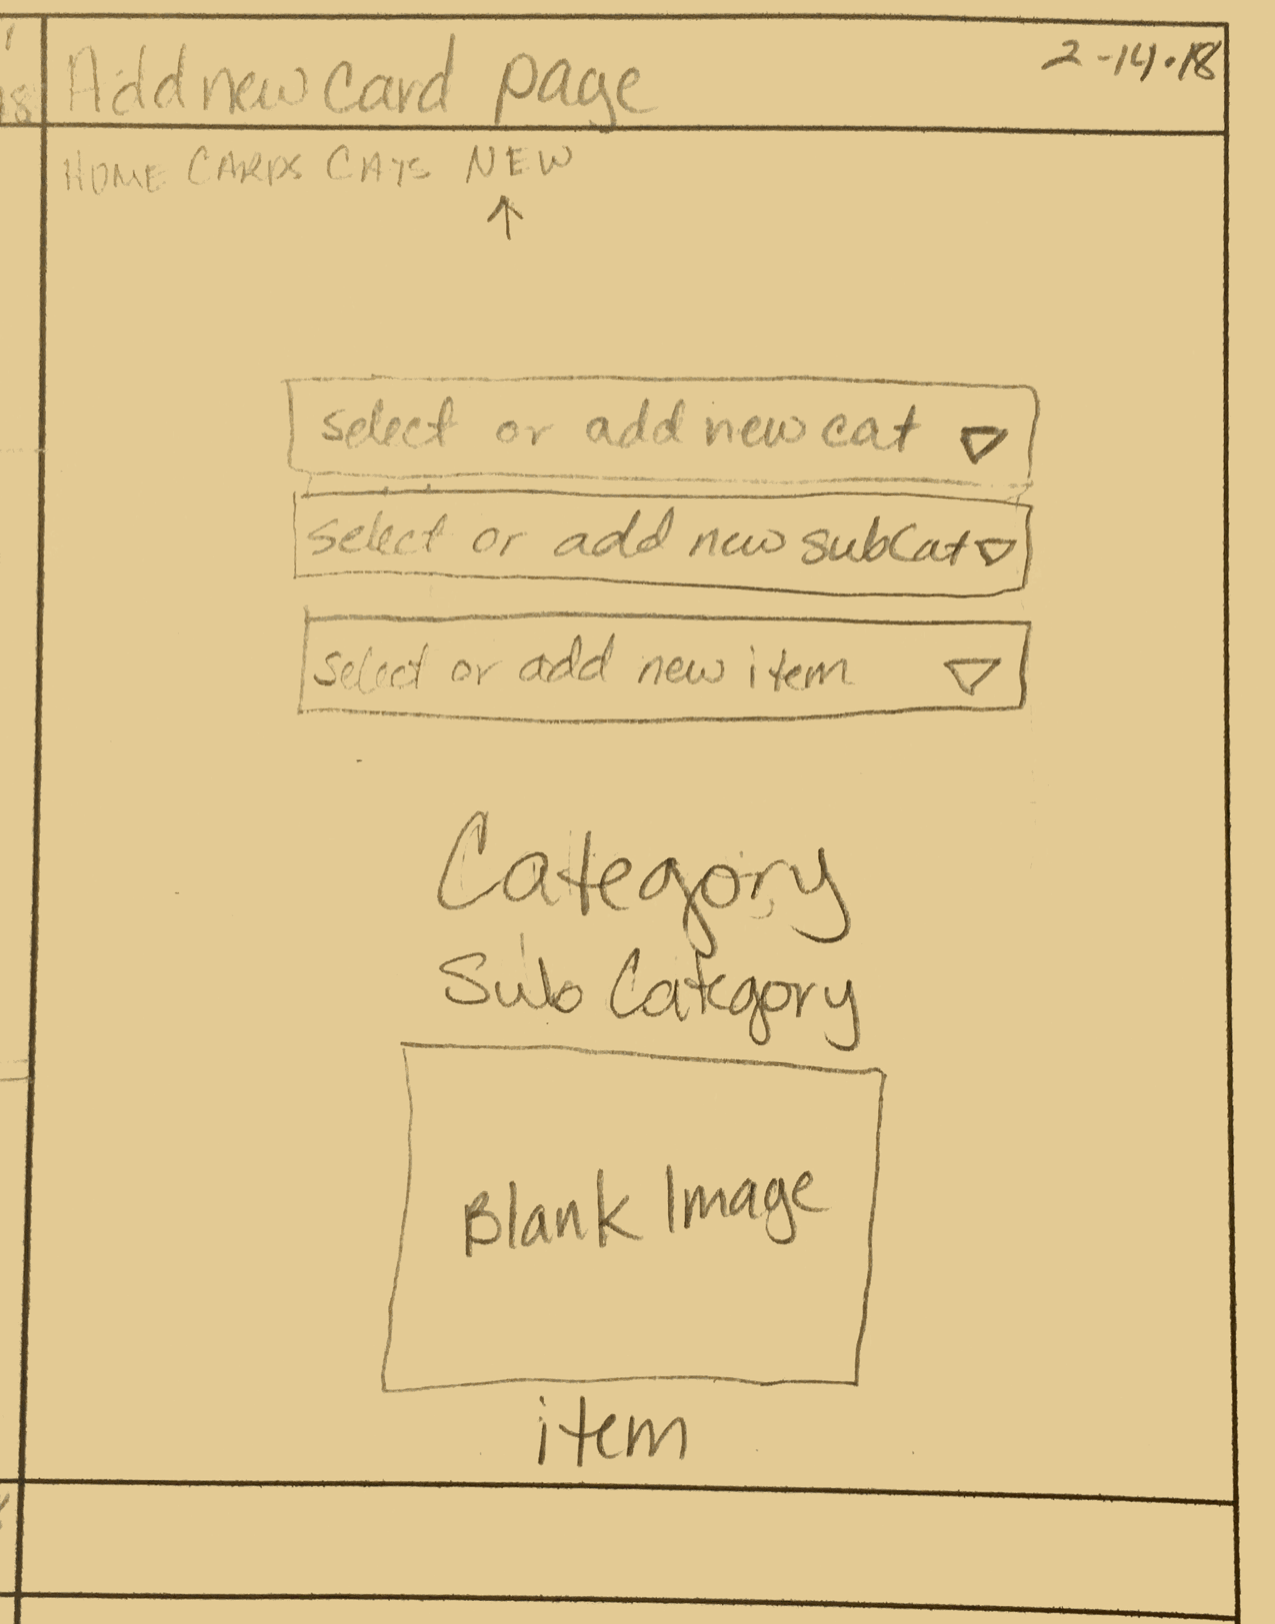 Add new card page
2-14-18
HOME CARDS CATS NEW
select or add new cat
select or add new subCat
select or add new item
Category
Sub Category
Blank Image
item